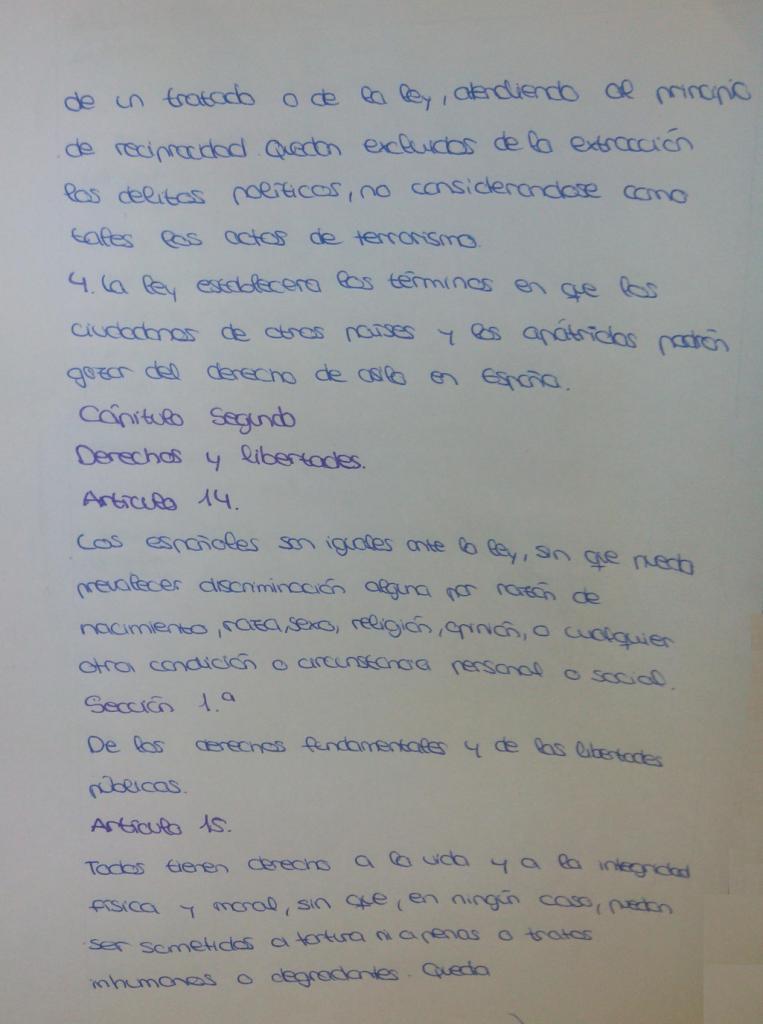 de un tratado o de la ley, atendiendo al principio
de reciprocidad. Quedan excluidos de la extracción
los delitos políticos, no considerandose como
tales los actos de terrorismo.
4. La ley establecera los términos en que los
ciudadanos de otros paises y los apátridas podrán
gozar del derecho de asilo en España.
Cápitulo Segundo
Derechos y libertades.
Articulo 14.
Los españoles son iguales ante la ley, sin que pueda
prevalecer discriminación alguna por razón de
nacimiento, raza, sexo, religión, opinión, o cualquier
otra condición o circunstancia personal o social.
Sección 1.ª
De los derechos fundamentales y de las libertades
públicas.
Articulo 15.
Todos tienen derecho a la vida y a la integridad
física y moral, sin que, en ningún caso, puedan
ser sometidos a tortura ni a penas o tratos
inhumanos o degradantes. Queda